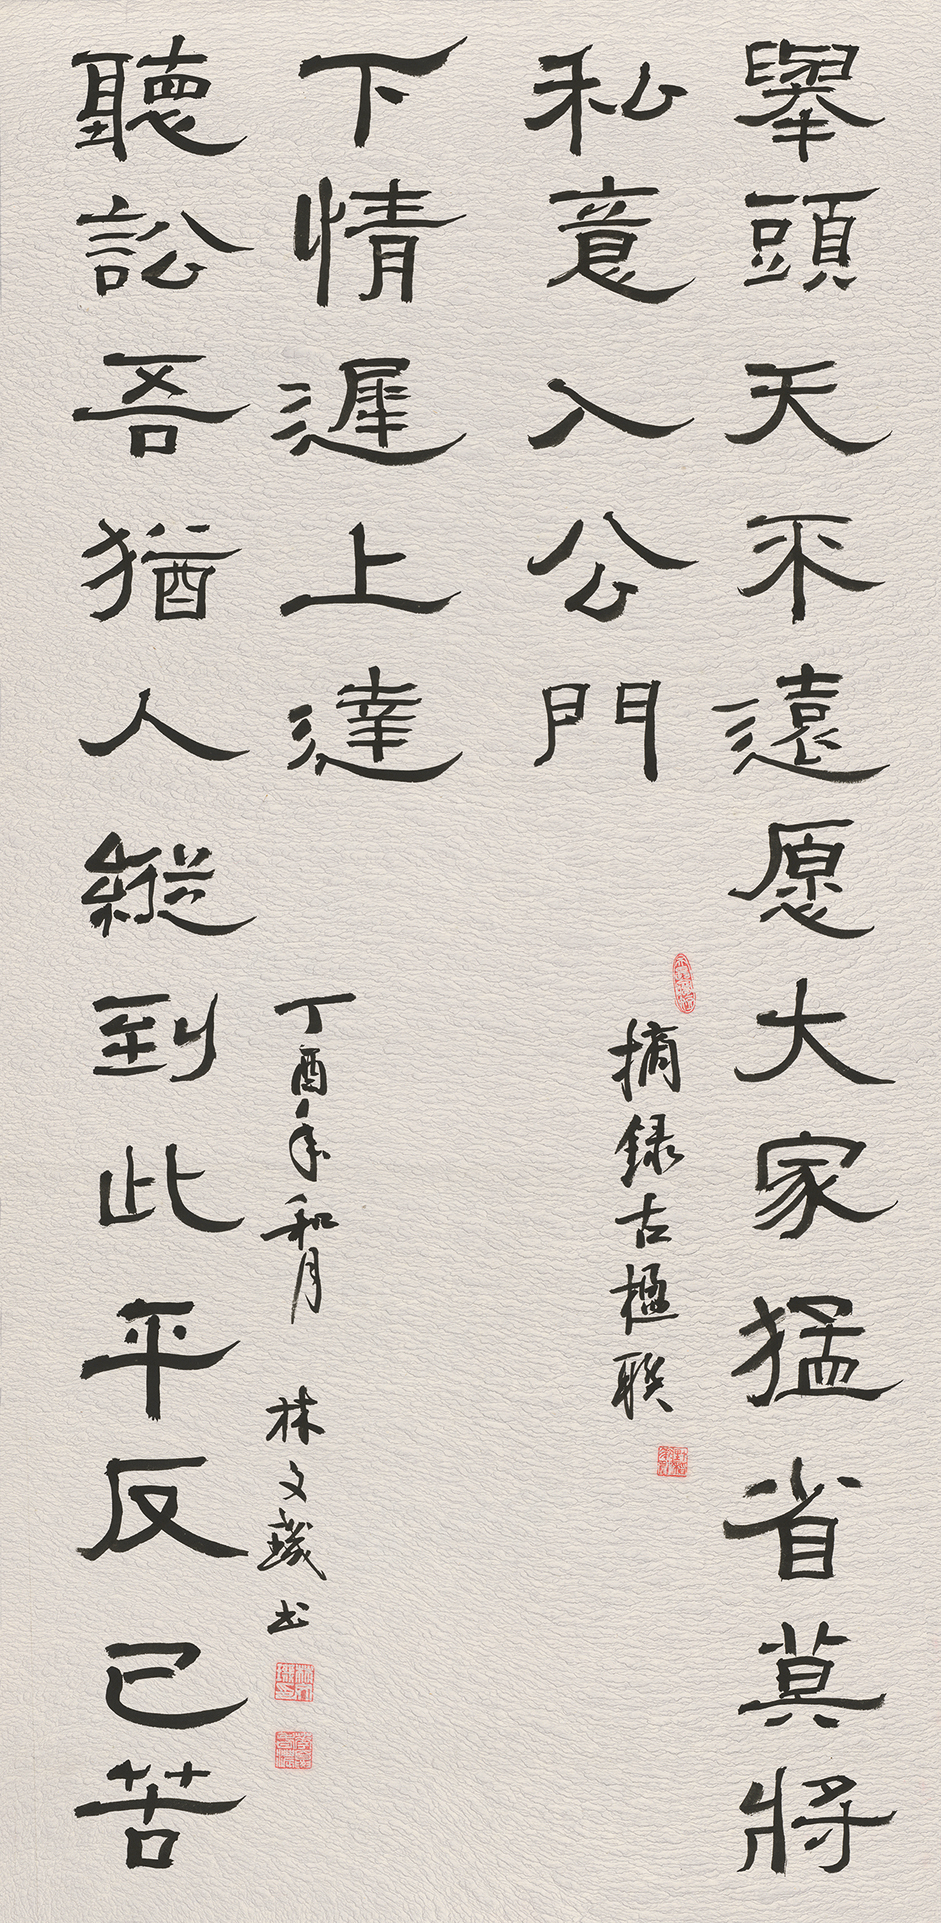 舉頭天不遠愿大家猛省莫將
私意入公門
摘録古楹联
聽訟吾猶人縱到此平反已苦
下情遲上達
丁酉年和月 林文璣书